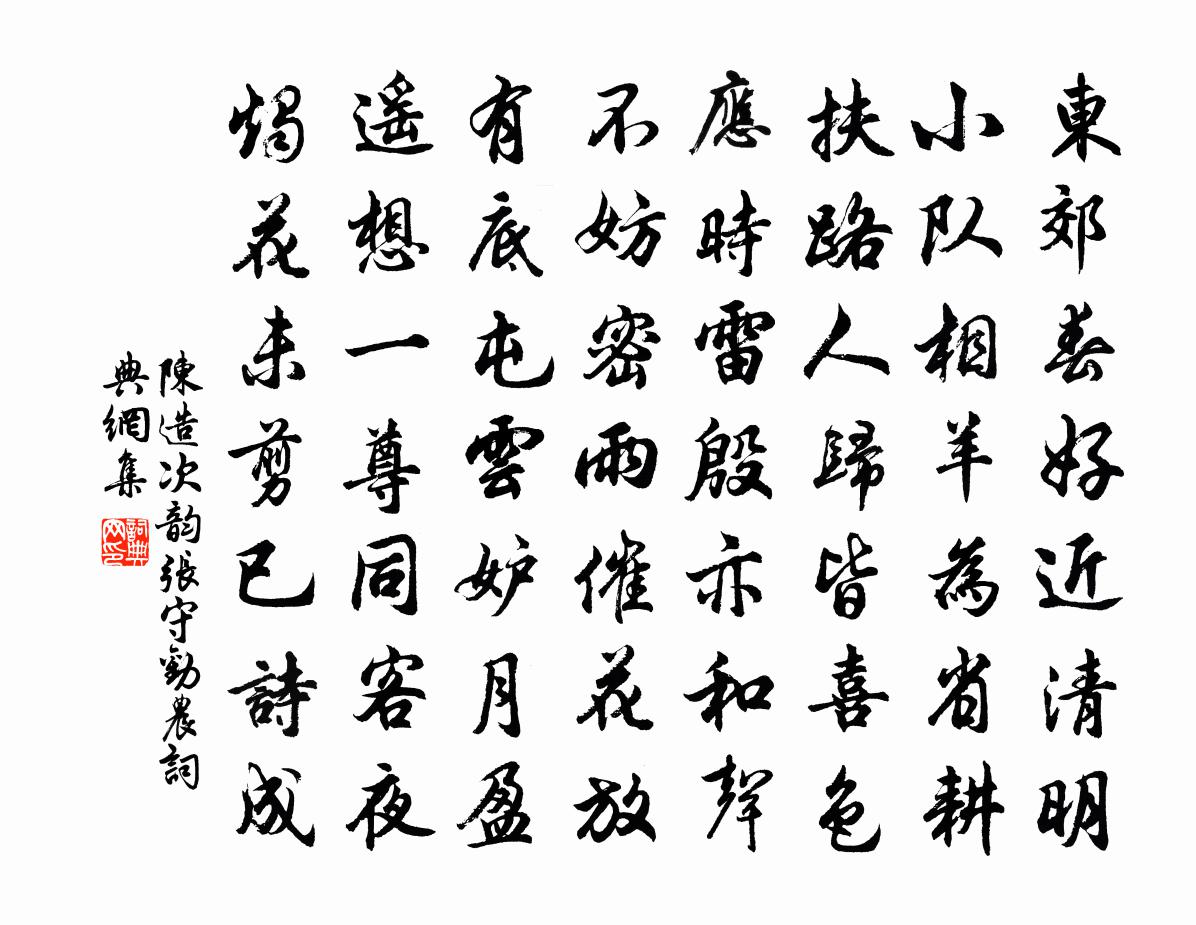 東郊春好近清明
小队相羊為省耕
扶路人歸皆喜色
應時雷殷亦和聲
不妨密雨催花放
有底屯雲妒月盈
遥想一尊同客夜
燭花未剪已詩成
陳造次韵張守勸農詞
典網集
詞典
网印